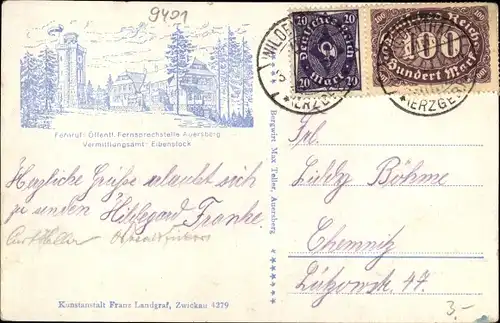 9401
Fernruf: Öffentl. Fernsprechstelle Auersberg
Vermittlungsamt: Eibenstock
Herzliche Grüße erlaubt sich
zu senden Hildegard Franke.
Kunstanstalt Franz Landgraf, Zwickau 4279
Bergwirt Max Teller, Auersberg
20 Deutsches Reich 20
20 Mark 20
Deutsches Reich
100
Hundert Mark
WILDE
(ERZGEB
(ERZGEB
Frl.
Liddy Böhme
Chemnitz
Lützowstr. 47.
3.-